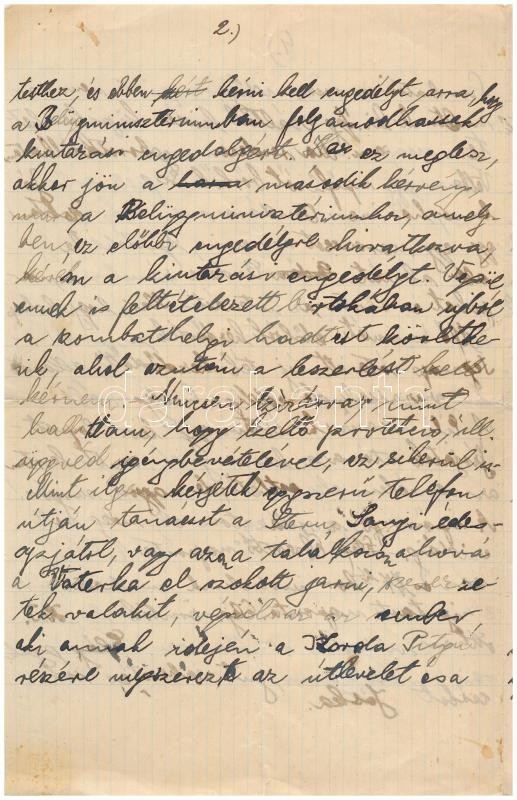 2.)
testhez, és ebben kért kérni kell engedélyt arra, hogy
a Belügyminisztériumban folyamodhassak
kiutazási engedélyért. Ha ez meglesz,
akkor jön a második kérvény,
a Belügyminisztériumhoz, amely-
ben ez előbbi engedélyre hivatkozva,
kérem a kiutazási engedélyt. Végül
ennek is feltételezett birtokában újból
a szombathelyi hadtest következ-
nik, ahol azután a leszerelést kell
kérnem. Nincsen kizárva, mint
hallottam, hogy kellő protekció, ill
ügyvéd igénybevételével, ez sikerül is.
Mint ilyen kérjetek egyszerű telefon
útján tanácsot a Stern Sanyi édes-
apjától, vagy azon a találkozón ahová
a Vaterka el szokott járni,
tek valakit, ember
aki annak idején a Korda
részére megszerezte az útlevelet és a
darabanth